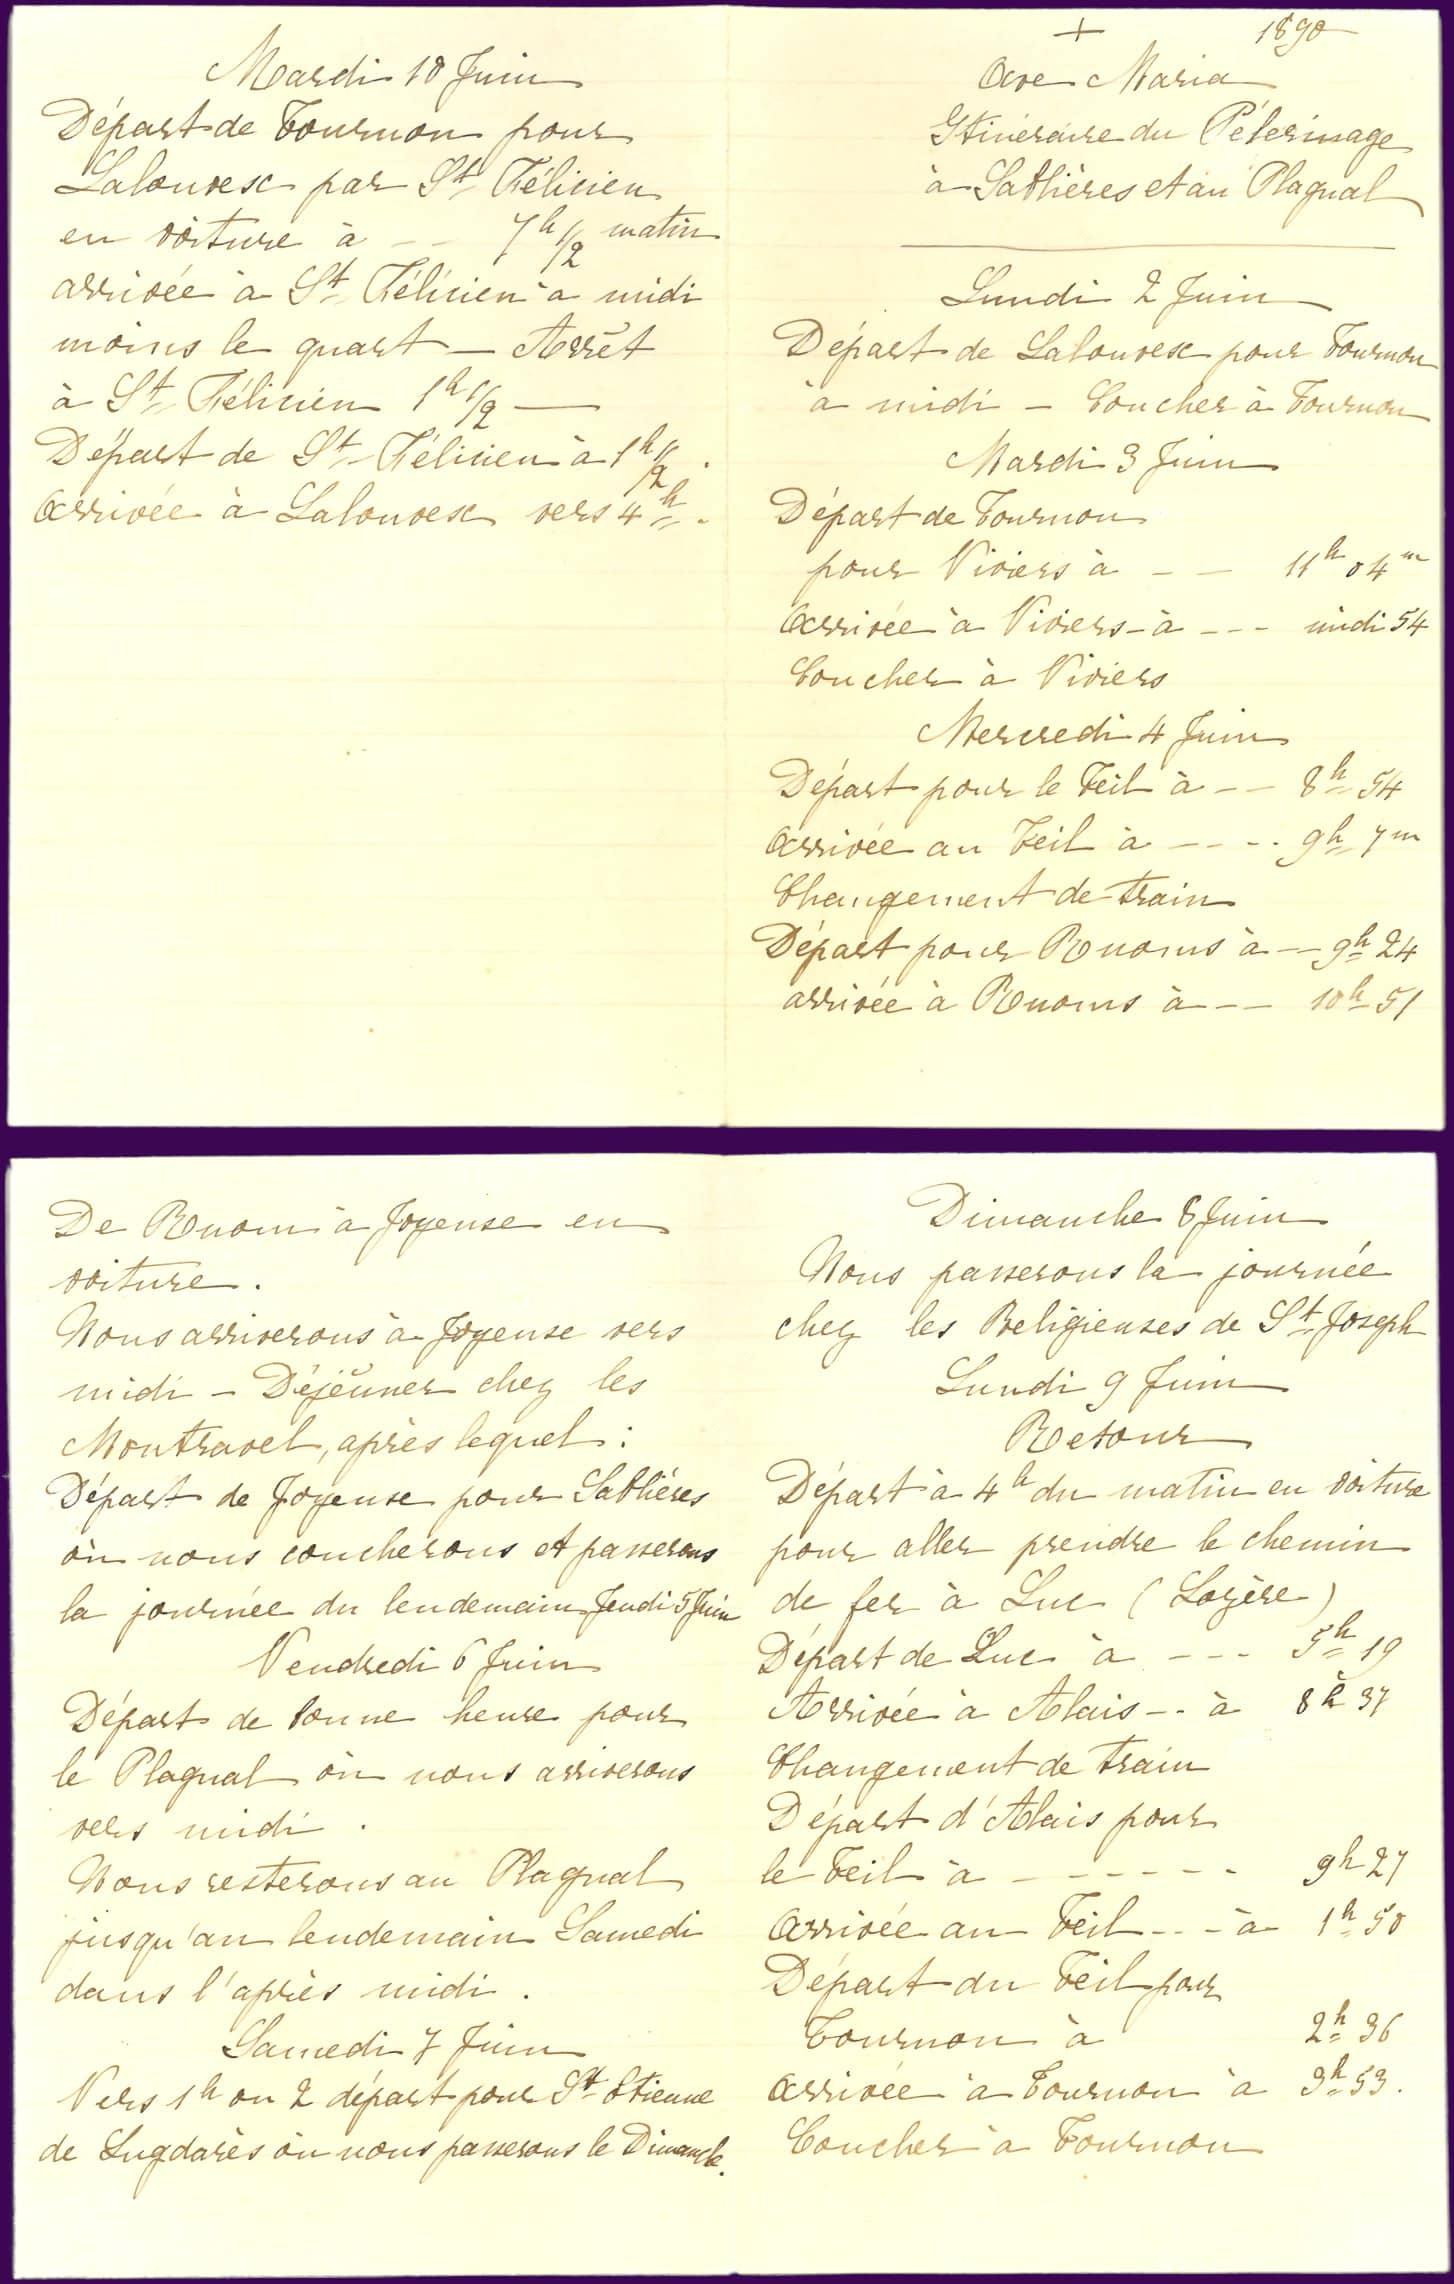 + 1890
Ave Maria
Itinéraire du Pélerinage
à Sablières et au Plagnal
Lundi 2 Juin
Départ de Lalouvesc pour Tournon
à midi - Coucher à Tournon
Mardi 3 Juin
Départ de Tournon
pour Viviers à - - 11h 04m
Arrivée à Viviers - à - - - midi 54
Coucher à Viviers
Mercredi 4 Juin
Départ pour le Teil à - - 8h 54
Arrivée au Teil à - - - - 9h 7m
Changement de train
Départ pour Ruoms à - 9h 24
arrivée à Ruoms à - - 10h 51
De Ruoms à Joyeuse en
voiture.
Nous arriverons à Joyeuse vers
midi - Déjeuner chez les
Montravel, après lequel :
Départ de Joyeuse pour Sablières
où nous coucherons et passerons
la journée du lendemain Jeudi 5 Juin
Vendredi 6 Juin
Départ de bonne heure pour
le Plagnal où nous arriverons
vers midi.
Nous resterons au Plagnal
jusqu'au lendemain Samedi
dans l'après midi.
Samedi 7 Juin
Vers 1h ou 2 départ pour St Etienne
de Lugdarès où nous passerons le Dimanche.
Dimanche 8 Juin
Nous passerons la journée
chez les Religieuses de St Joseph
Lundi 9 Juin
Retour
Départ à 4h du matin en voiture
pour aller prendre le chemin
de fer à Luc (Lozère)
Départ de Luc à - - - 5h 19
Arrivée à Alais - - à 8h 37
Changement de train
Départ d'Alais pour
le Teil à - - - - - 9h 27
Arrivée au Teil - - - à 1h 50
Départ du Teil pour
Tournon à 2h 36
Arrivée à Tournon à 3h 53.
Coucher à Tournon
Mardi 10 Juin
Départ de Tournon pour
Lalouvesc par St Félicien
en voiture à - - 7h 1/2 matin
arrivée à St Félicien à midi
moins le quart - Arrêt
à St Félicien 1h 1/2 -
Départ de St Félicien à 1h 1/2.
Arrivée à Lalouvesc vers 4h.